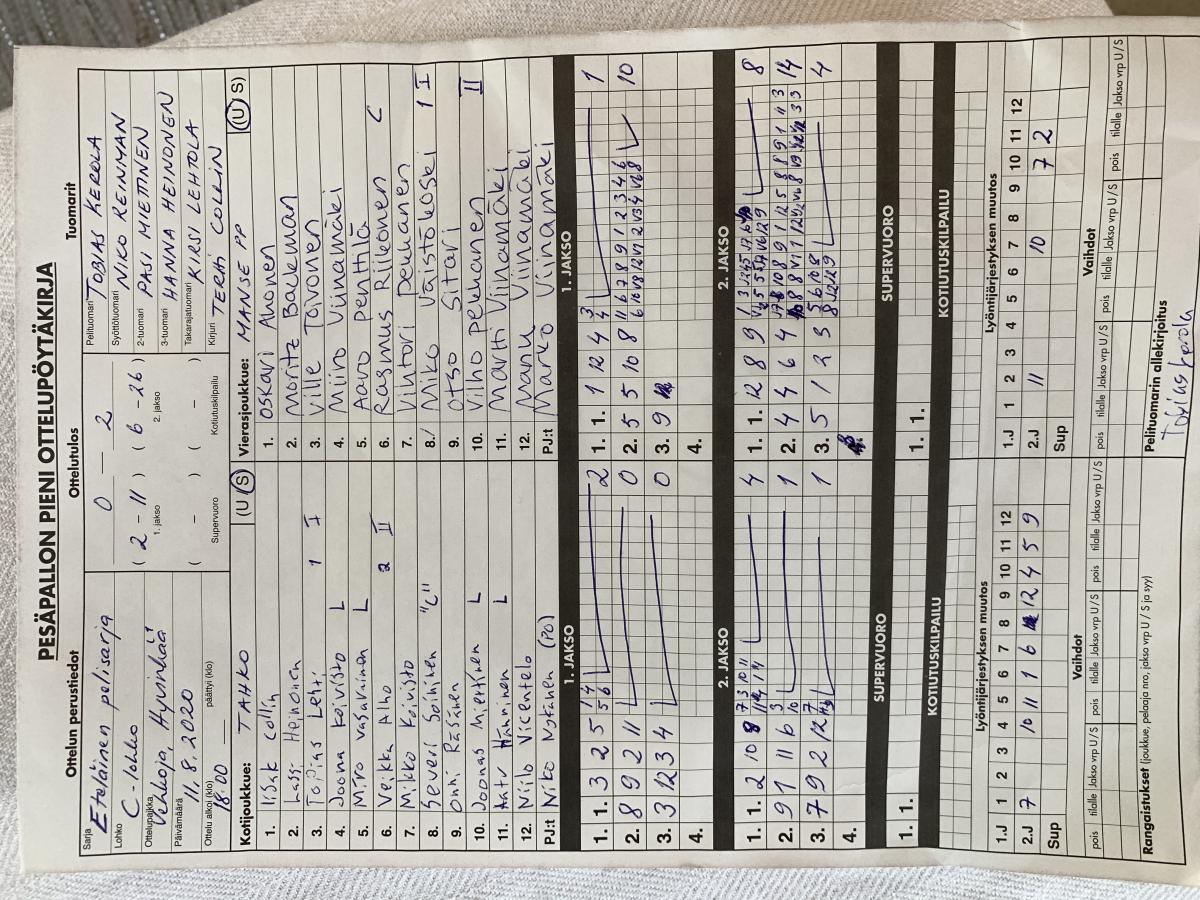 PESÄPALLON PIENI OTTELUPÖYTÄKIRJA
Ottelun perustiedot
Sarja Eteläinen pelisarja
Lohko C-lohko
Ottelupaikka Vehkoja, Hyvinkää
Päivämäärä 11.8.2020
Ottelu alkoi (klo) 18:00 päättyi (klo)
Ottelutulos
0 – 2
( 2 – 11 ) ( 6 – 26 )
1. jakso 2. jakso
( – ) ( – )
Supervuoro Kotiutuskilpailu
Tuomarit
Pelituomari TOBIAS KEROLA
Syöttötuomari NIKO REINMAN
2-tuomari PASI MIETTINEN
3-tuomari HANNA HEINONEN
Takarajatuomari KIRSI LEHTOLA
Kirjuri TERHI COLLIN
Kotijoukkue: TAHKO (U S)
1. Iisak Collin
2. Lassi Heinonen
3. Topias Lehti 1 I
4. Joona Koivisto L
5. Miro Vasarainen L
6. Veikka Alho 2 II
7. Mikko Koivisto
8. Severi Soininen "C"
9. Onni Räsänen
10. Joonas Miettinen L
11. Hänninen L
12. Niilo Vicentelo
PJ:t Niko Nykänen (PO)
Vierasjoukkue: MANSE PP (U S)
1. Oskari Ahonen
2. Moritz Bakeman
3. Ville Toivonen
4. Miiro Viinamäki
5. Aaro Penttilä
6. Rasmus Riikonen C
7. Vihtori Pekkanen
8. Miko Väistökoski 1 I
9. Otso Sitari
10. Vilho Pekkanen II
11. Martti Viinamäki
12. Manu Viinamäki
PJ:t Marko Viinamäki
1. JAKSO
1. 1. 3 2 5 2
2. 8 9 2 11 0
3. 3 12 3 4 0
4.
1. JAKSO
1. 1. 1 12 4 1
2. 5 5 10 8 10
3. 9
4.
2. JAKSO
1. 1. 2 10 8 4
2. 9 11 11 6 1
3. 7 9 2 12 1
4.
2. JAKSO
1. 1. 12 8 9 8
2. 4 4 6 4 14
3. 5 1 2 3 4
SUPERVUORO
1. 1.
SUPERVUORO
1. 1.
KOTIUTUSKILPAILU
KOTIUTUSKILPAILU
Lyöntijärjestyksen muutos
1.J 1 2 3 4 5 6 7 8 9 10 11 12
2.J 7 10 11 1 6 12 4 5 9
Sup
Lyöntijärjestyksen muutos
1.J 1 2 3 4 5 6 7 8 9 10 11 12
2.J 11 10 7 2
Sup
Vaihdot
pois tilalle Jakso vrp U / S pois tilalle Jakso vrp U / S pois tilalle Jakso vrp U / S
Vaihdot
pois tilalle Jakso vrp U / S pois tilalle Jakso vrp U / S pois tilalle Jakso vrp U / S
Rangaistukset (joukkue, pelaaja nro, jakso vrp U / S ja syy)
Pelituomarin allekirjoitus
Tobias Kerola